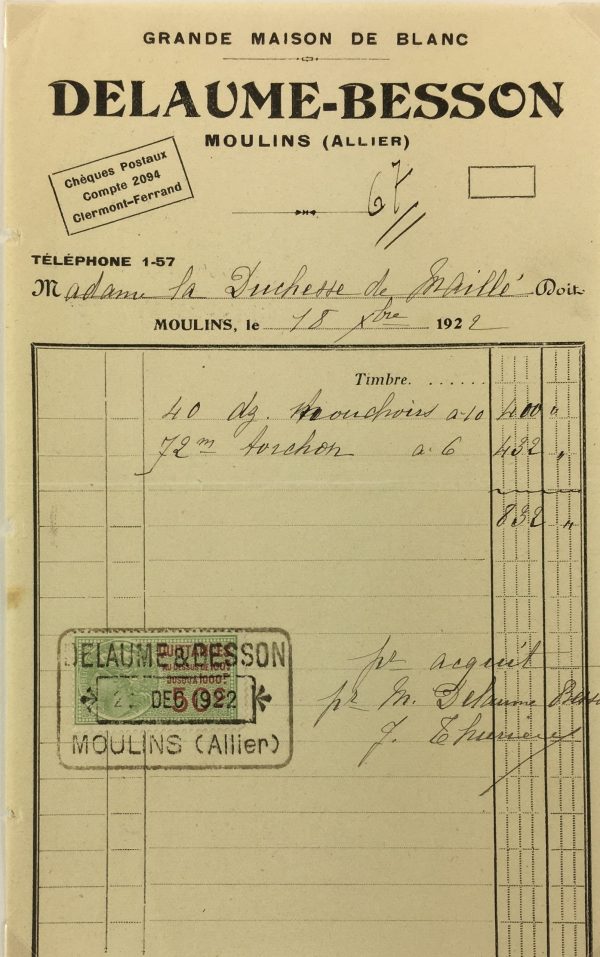 GRANDE MAISON DE BLANC
DELAUME-BESSON
MOULINS (ALLIER)
Chèques Postaux
Compte 2094
Clermont-Ferrand
67
TÉLÉPHONE 1-57
Madame la Duchesse de Maillé Doit
MOULINS, le 18 Xbre 1922
Timbre. . . . . . .
40 dz. mouchoirs a 10 400 "
72m torchon a 6 432 "
832 "
DELAUME & BESSON
QUITTANCES
AU DESSUS DE 100F
JUSQU'A 1000F
50c
DEC 1922
MOULINS (Allier)
pr acquit
pr M. Delaume Bess